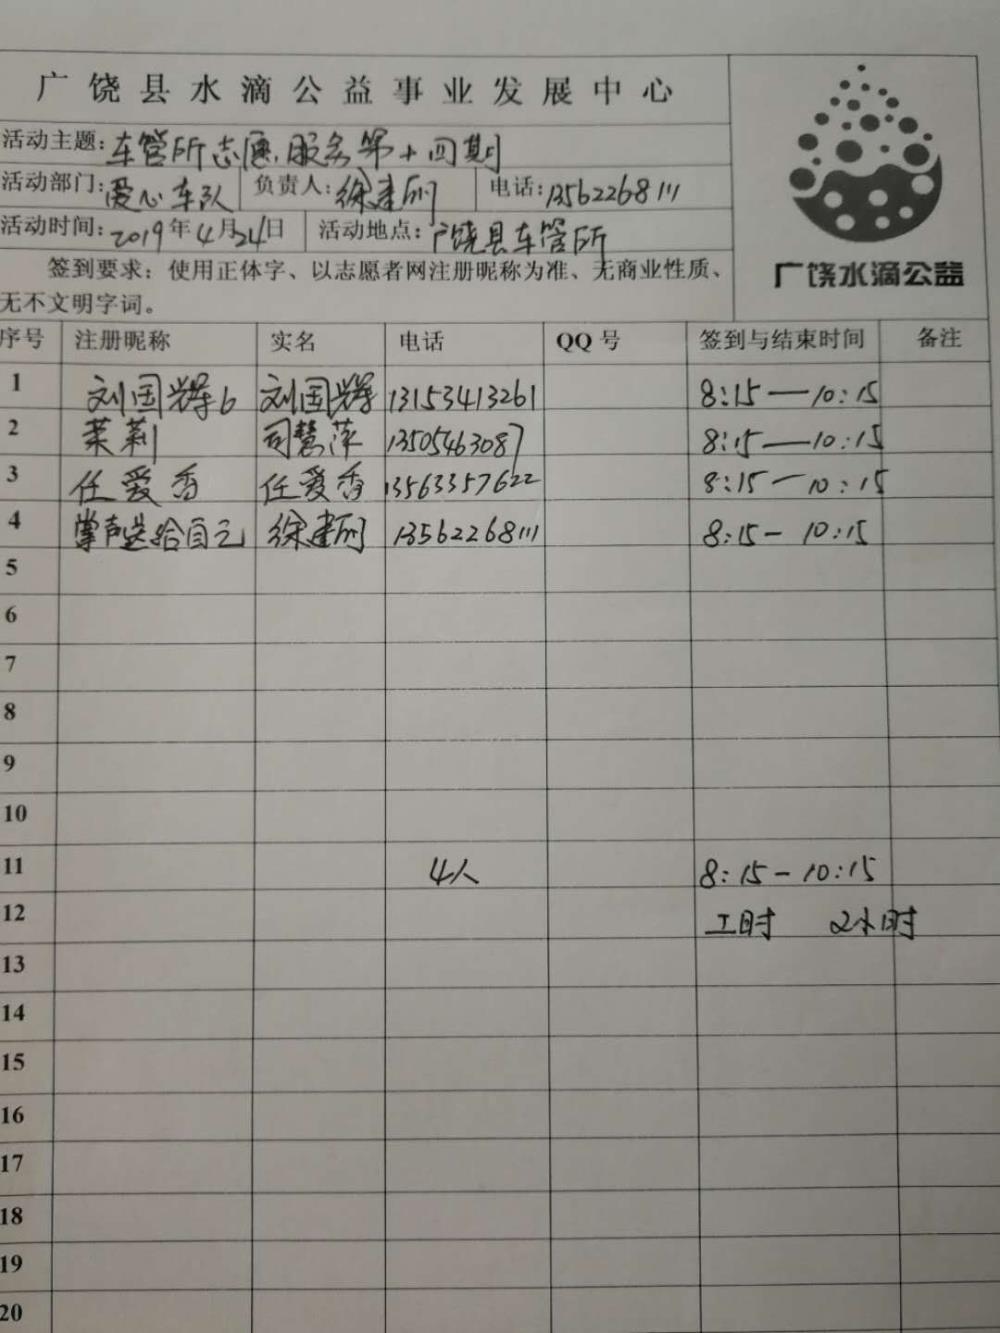 广饶县水滴公益事业发展中心
活动主题：车管所志愿服务第十四期
活动部门：爱心车队 负责人：徐建刚 电话：13562268111
活动时间：2019年4月24日 活动地点：广饶县车管所
签到要求：使用正体字、以志愿者网注册昵称为准、无商业性质、
无不文明字词。
广饶水滴公益
序号 注册昵称 实名 电话 QQ号 签到与结束时间 备注
1 刘国辉6 刘国辉 13153413261 8:15—10:15
2 茉莉 司慧萍 13505463087 8:15—10:15
3 任爱香 任爱香 13563357622 8:15—10:15
4 掌声送给自己 徐建刚 13562268111 8:15-10:15
5
6
7
8
9
10
11 4人 8:15-10:15
12 工时 2小时
13
14
15
16
17
18
19
20